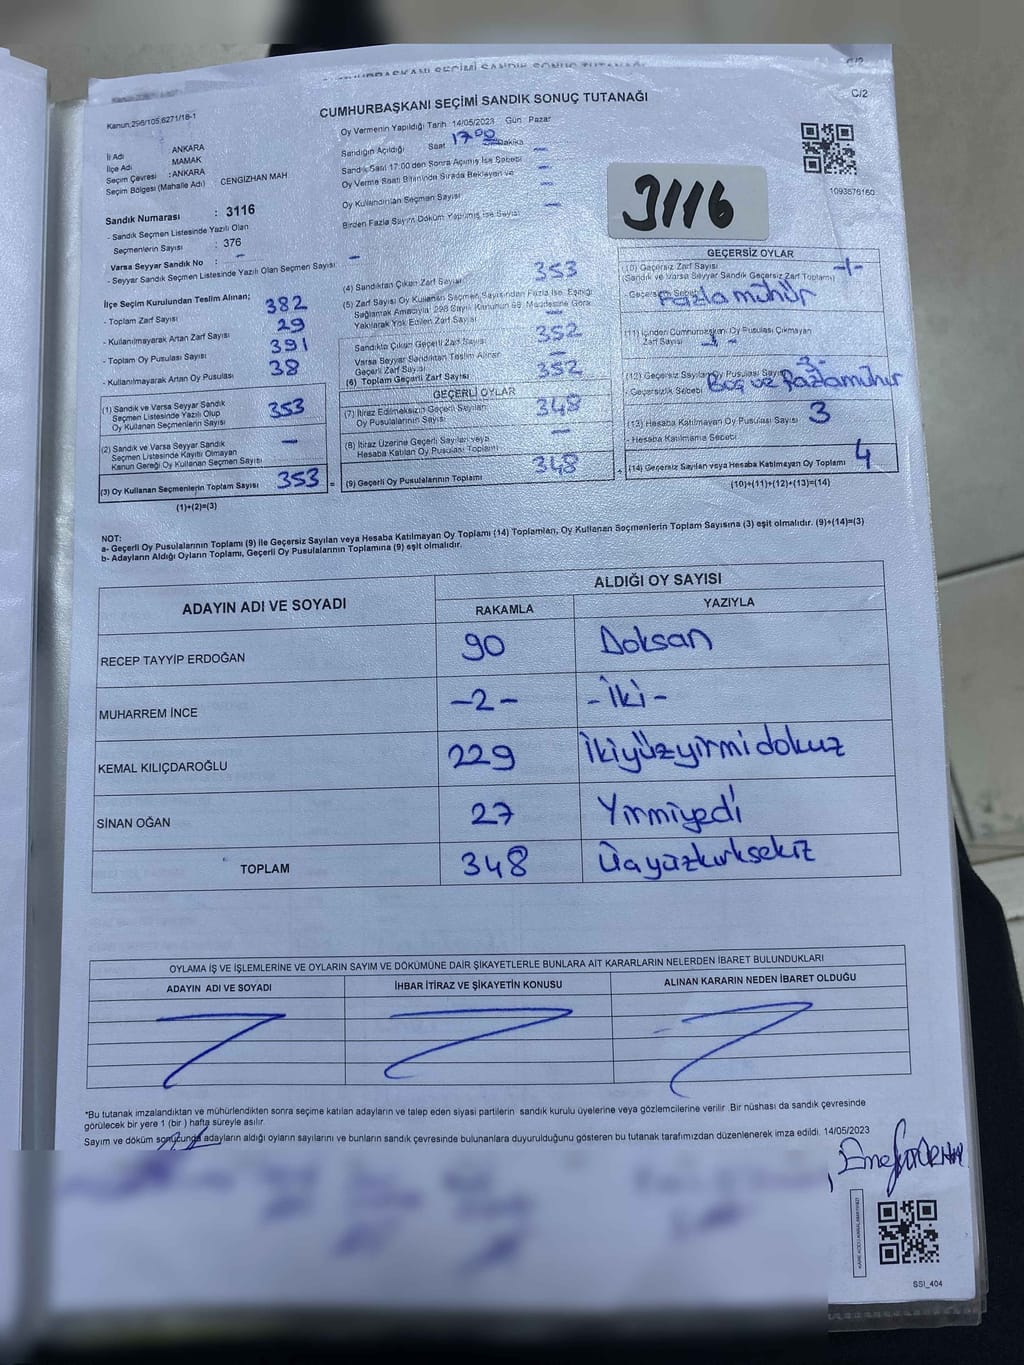 C/2
CUMHURBAŞKANI SEÇİMİ SANDIK SONUÇ TUTANAĞI
Kanun:298/105,6271/18-1
Oy Vermenin Yapıldığı Tarih 14/05/2023 Gün: Pazar
Sandığın Açıldığı Saat 17:00 Dakika
Sandık Saat 17:00'den Sonra Açılmış İse Sebebi –
Oy Verme Saati Bitiminde Sırada Bekleyen ve
Oy Kullandırılan Seçmen Sayısı –
Birden Fazla Sayım Döküm Yapılmış İse Sayısı –
İl Adı : ANKARA
İlçe Adı MAMAK
Seçim Çevresi : ANKARA
Seçim Bölgesi (Mahalle Adı) CENGİZHAN MAH
3116
1093576160
Sandık Numarası : 3116
- Sandık Seçmen Listesinde Yazılı Olan
Seçmenlerin Sayısı : 376
Varsa Seyyar Sandık No : –
- Seyyar Sandık Seçmen Listesinde Yazılı Olan Seçmen Sayısı: –
İlçe Seçim Kurulundan Teslim Alınan;
- Toplam Zarf Sayısı 382
- Kullanılmayarak Artan Zarf Sayısı 29
- Toplam Oy Pusulası Sayısı 391
- Kullanılmayarak Artan Oy Pusulası 38
(1) Sandık ve Varsa Seyyar Sandık
Seçmen Listesinde Yazılı Olup
Oy Kullanan Seçmenlerin Sayısı 353
(2) Sandık ve Varsa Seyyar Sandık
Seçmen Listesinde Kayıtlı Olmayan
Kanun Gereği Oy Kullanan Seçmen Sayısı –
(3) Oy Kullanan Seçmenlerin Toplam Sayısı 353 =
(1)+(2)=(3)
(4) Sandıktan Çıkan Zarf Sayısı 353
(5) Zarf Sayısı Oy Kullanan Seçmen Sayısından Fazla İse, Eşitliği
Sağlamak Amacıyla 298 Sayılı Kanunun 98. Maddesine Göre
Yakılarak Yok Edilen Zarf Sayısı –
Sandıkta Çıkan Geçerli Zarf Sayısı 352
Varsa Seyyar Sandıktan Teslim Alınan
Geçerli Zarf Sayısı –
(6) Toplam Geçerli Zarf Sayısı 352
GEÇERLİ OYLAR
(7) İtiraz Edilmeksizin Geçerli Sayılan
Oy Pusulası Sayısı 348
(8) İtiraz Üzerine Geçerli Sayılan veya
Hesaba Katılan Oy Pusulası Toplamı –
(9) Geçerli Oy Pusulalarının Toplamı 348 +
GEÇERSİZ OYLAR
(10) Geçersiz Zarf Sayısı -1-
(Sandık ve Varsa Seyyar Sandık Geçersiz Zarf Toplamı)
- Geçersizlik Sebebi Fazla mühür
(11) İçinden Cumhurbaşkanı Oy Pusulası Çıkmayan
Zarf Sayısı
(12) Geçersiz Sayılan Oy Pusulası Sayısı 3-
- Geçersizlik Sebebi Boş ve fazla mühür
(13) Hesaba Katılmayan Oy Pusulası Sayısı 3
- Hesaba Katılmama Sebebi
(14) Geçersiz Sayılan veya Hesaba Katılmayan Oy Toplamı 4
(10)+(11)+(12)+(13)=(14)
NOT:
a- Geçerli Oy Pusulalarının Toplamı (9) ile Geçersiz Sayılan veya Hesaba Katılmayan Oy Toplamı (14) Toplamları, Oy Kullanan Seçmenlerin Toplam Sayısına (3) eşit olmalıdır. (9)+(14)=(3)
b- Adayların Aldığı Oyların Toplamı, Geçerli Oy Pusulalarının Toplamına (9) eşit olmalıdır.
ADAYIN ADI VE SOYADI ALDIĞI OY SAYISI
RAKAMLA YAZIYLA
RECEP TAYYİP ERDOĞAN 90 Doksan
MUHARREM İNCE -2- -İki-
KEMAL KILIÇDAROĞLU 229 İkiyüzyirmidokuz
SİNAN OĞAN 27 Yirmiyedi
TOPLAM 348 Üçyüzkırksekiz
OYLAMA İŞ VE İŞLEMLERİNE VE OYLARIN SAYIM VE DÖKÜMÜNE DAİR ŞİKAYETLERLE BUNLARA AİT KARARLARIN NELERDEN İBARET BULUNDUKLARI
ADAYIN ADI VE SOYADI İHBAR İTİRAZ VE ŞİKAYETİN KONUSU ALINAN KARARIN NEDEN İBARET OLDUĞU
*Bu tutanak imzalandıktan ve mühürlendikten sonra seçime katılan adayların ve talep eden siyasi partilerin sandık kurulu üyelerine veya gözlemcilerine verilir. Bir nüshası da sandık çevresinde
görülecek bir yere 1 (bir) hafta süreyle asılır.
Sayım ve döküm sonucunda adayların aldığı oyların sayılarını ve bunların sandık çevresinde bulunanlara duyurulduğunu gösteren bu tutanak tarafımızdan düzenlenerek imza edildi. 14/05/2023
SSI_404